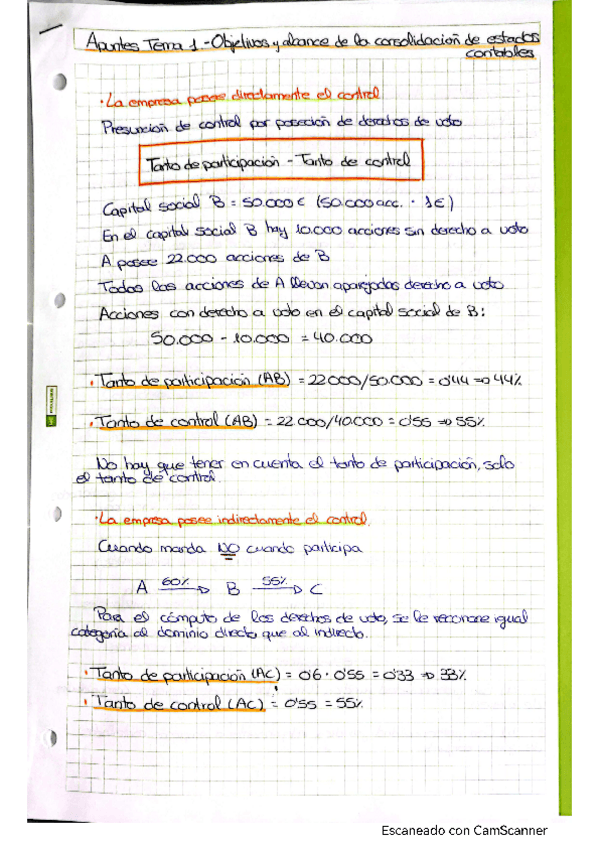 Apuntes Tema 1.- Objetivos y alcance de la consolidación de estados
contables
· La empresa posee directamente el control
Presunción de control por posesión de derechos de voto
Tanto de participación - Tanto de control
Capital social B = 50.000€ (50.000 acc. · 1€)
En el capital social B hay 10.000 acciones sin derecho a voto
A posee 22.000 acciones de B
Todas las acciones de A llevan aparejadas derecho a voto
Acciones con derecho a voto en el capital social de B:
50.000 - 10.000 = 40.000
· Tanto de participación (AB) = 22000/50.000 = 0'44 => 44%
· Tanto de control (AB) = 22.000/40.000 = 0'55 => 55%
No hay que tener en cuenta el tanto de participación, solo
el tanto de control.
· La empresa posee indirectamente el control.
Cuando manda NO cuando participa
A 60% → B 55% → C
Para el cómputo de los derechos de voto, se le reconoce igual
categoría al dominio directo que al indirecto.
· Tanto de participación (AC) = 0'6 · 0'55 = 0'33 => 33%
· Tanto de control (AC) = 0'55 = 55%
Escaneado con CamScanner